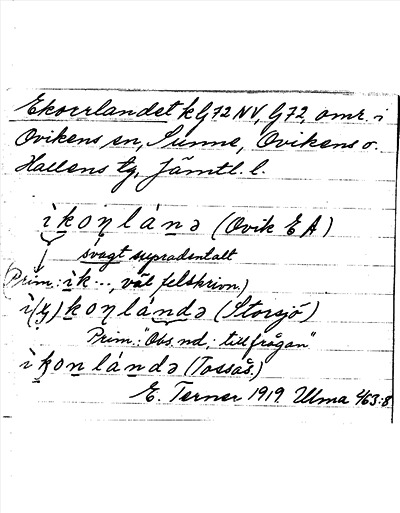 Ekoerlandet k G72 NV, G72, omr. i
Ovikens sn, Sunne, Ovikens o.
Hallens tg, Jämtl. l.
ìkoɳlánə (Ovik E A)
svagt supradentalt
(Prim.: ìk..., väl felskrivn.)
ì(ɟ)koɳlándə (Storsjö)
Prim.: "Obs. nd; tillfrågan"
ìkonlándə (Tossås.)
E. Terner 1919. Ulma 463:8